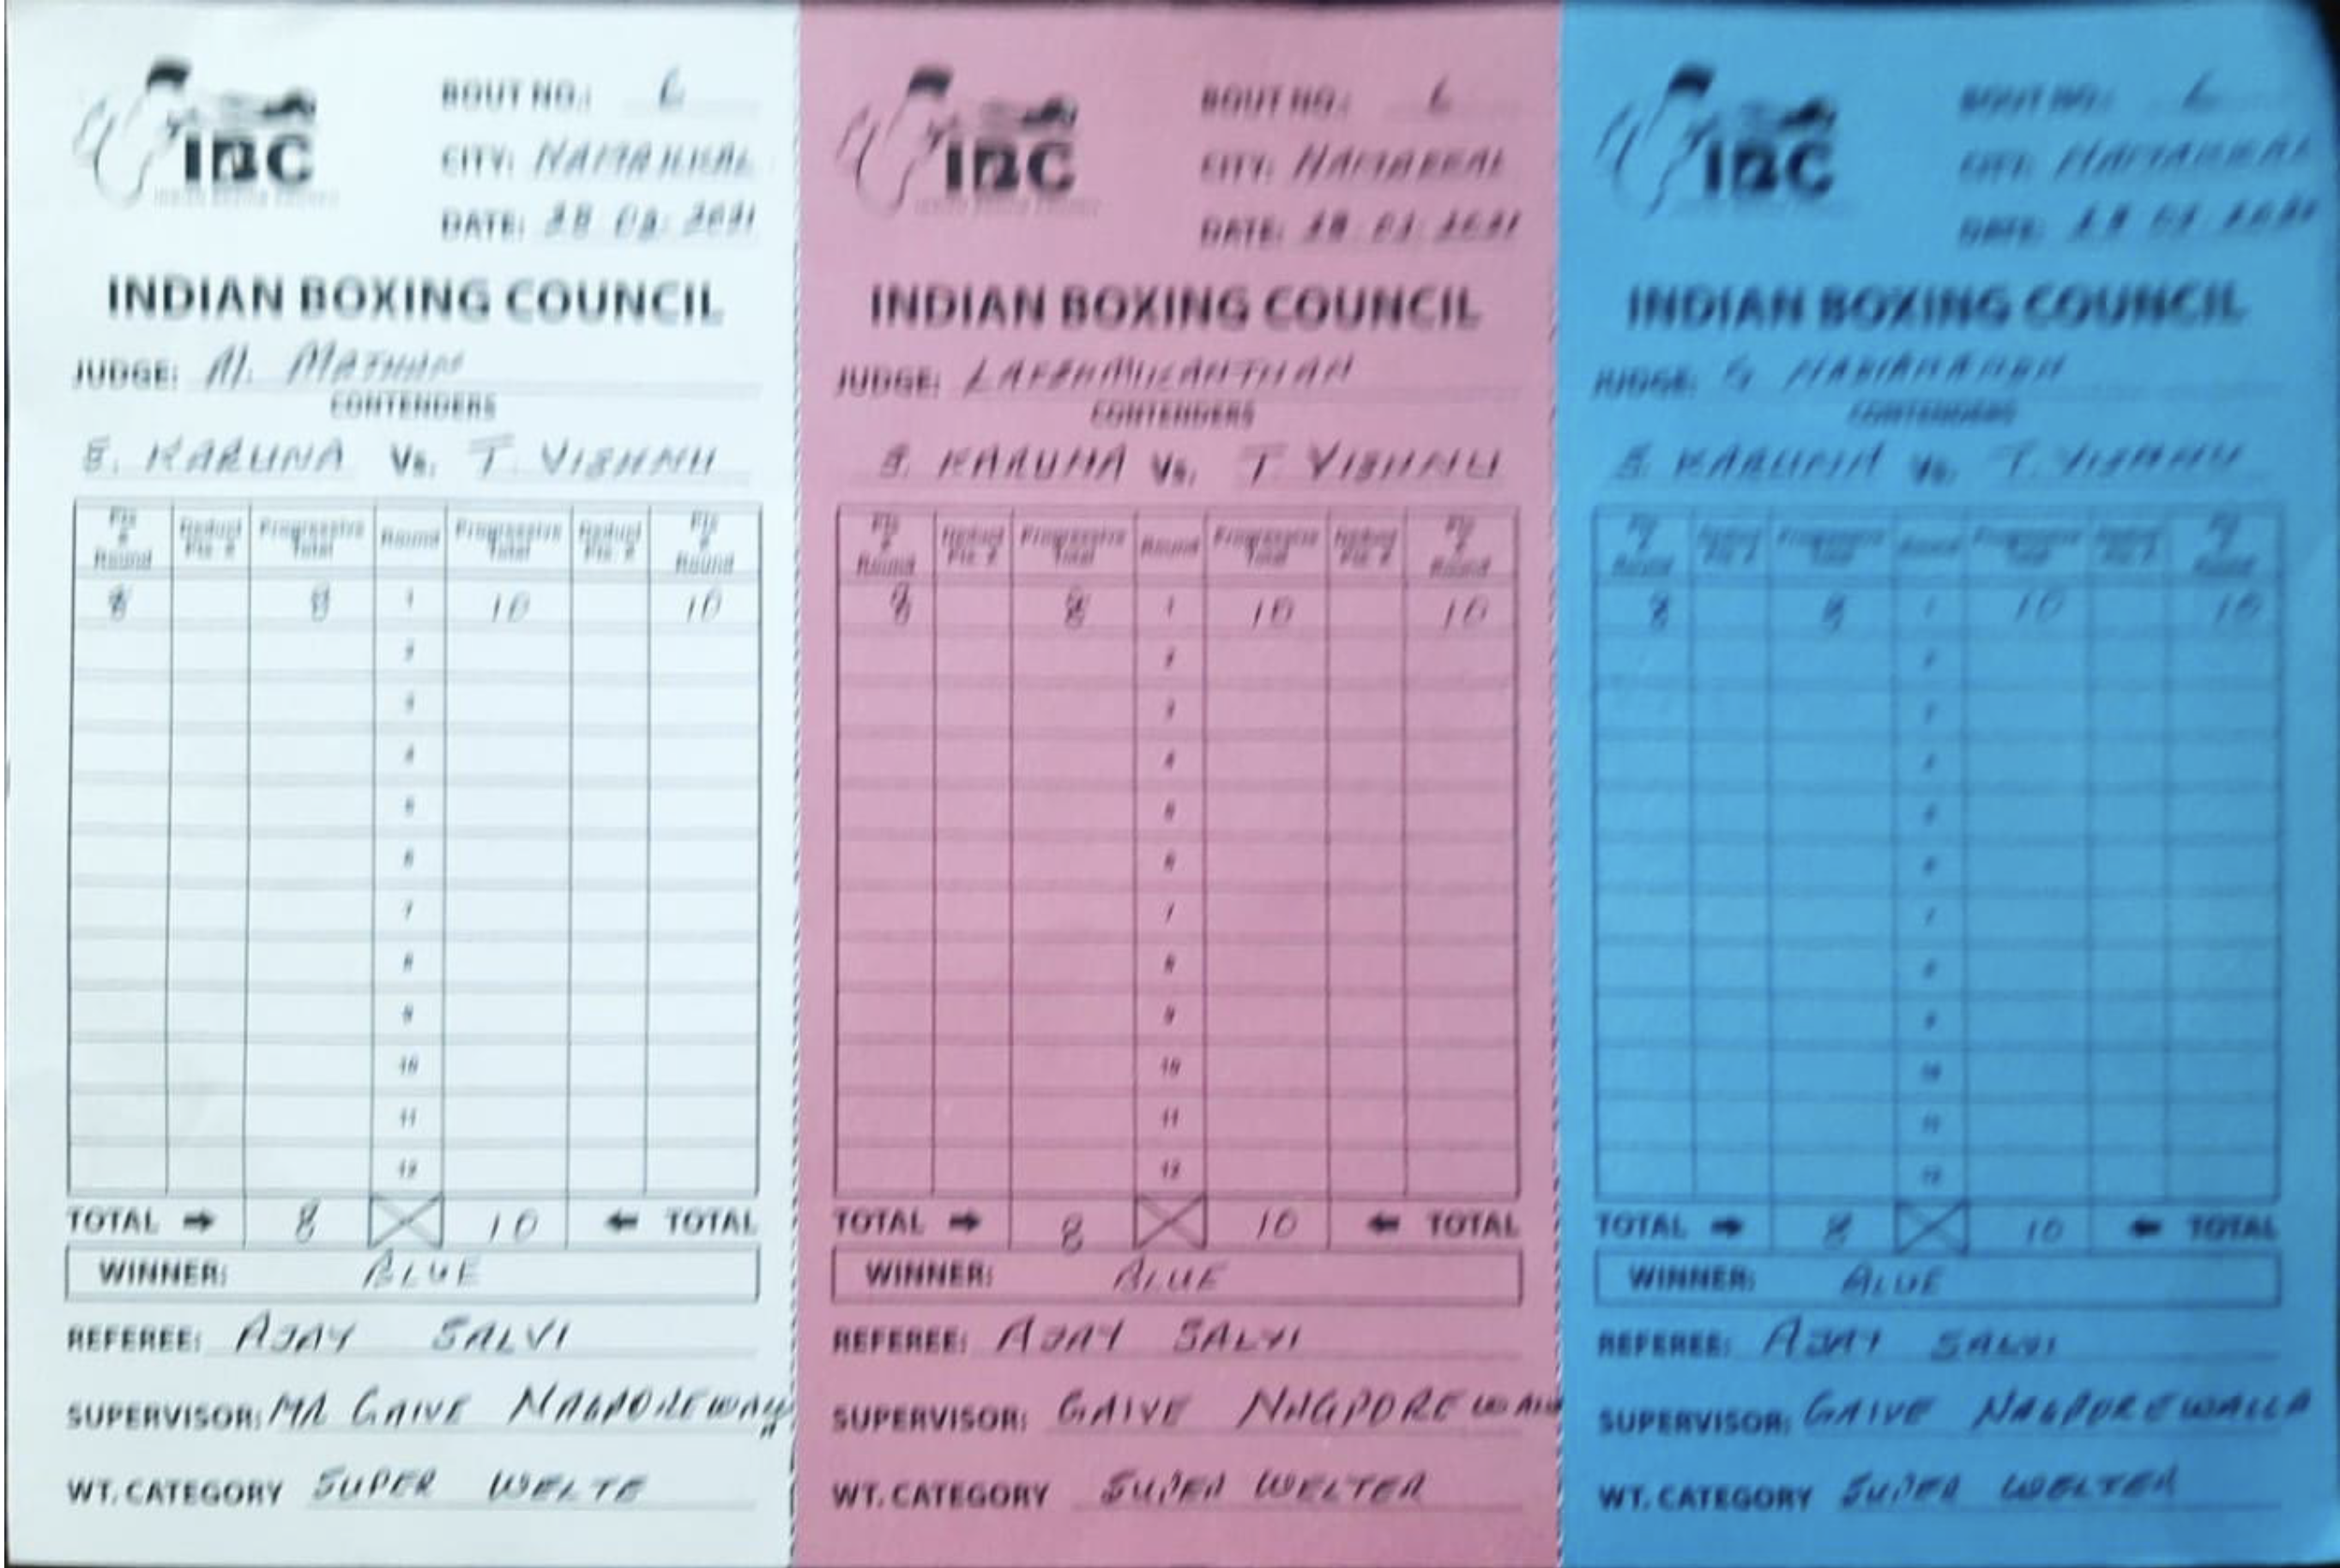 IBC
BOUT NO.: 6
CITY: NAMAKKAL
DATE: 28 02 2021
INDIAN BOXING COUNCIL
JUDGE: M.
CONTENDERS
S. KARUNA Vs. T. VISHNU
Pts Round Progressive Total Round Progressive Total Pts Round
8 8 1 10 10
2
3
4
5
6
7
8
9
10
11
12
TOTAL 8 10 TOTAL
WINNER: BLUE
REFEREE: AJAY SALVI
SUPERVISOR: MR GAIVE
WT. CATEGORY SUPER WELTE
IBC
BOUT NO.: 6
CITY: NAMAKKAL
DATE: 28 02 2021
INDIAN BOXING COUNCIL
JUDGE: LAKSHMIKANTHAN
CONTENDERS
S. KARUNA Vs. T VISHNU
Pts Round Progressive Total Round Progressive Total Pts Round
8 8 1 10 10
2
3
4
5
6
7
8
9
10
11
12
TOTAL 8 10 TOTAL
WINNER: BLUE
REFEREE: AJAY SALVI
SUPERVISOR: GAIVE
WT. CATEGORY SUPER WELTER
IBC
BOUT NO.: 6
CITY: NAMAKKAL
DATE: 28 02 2021
INDIAN BOXING COUNCIL
JUDGE:
CONTENDERS
S. KARUNA Vs. T. VISHNU
Round Progressive Total Round Progressive Total Round
8 8 1 10 10
2
3
4
5
6
7
8
9
10
11
12
TOTAL 8 10 TOTAL
WINNER: BLUE
REFEREE: AJAY SALVI
SUPERVISOR: GAIVE NAGPOREWALLA
WT. CATEGORY SUPER WELTER